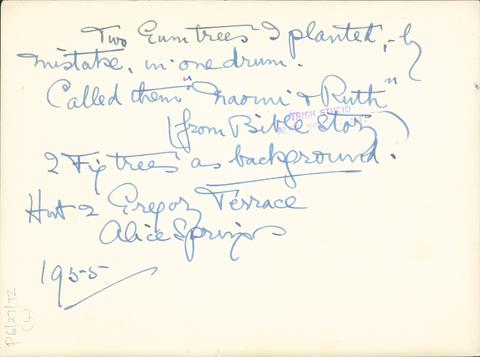 Two Gum trees I planted, - by
mistake, in one drum.
Called them "Naomi & Ruth"
(from Bible Story)
2 Fig trees as background.
Hut 2 Gregory Terrace
Alice Springs
1955
P6/27/72
(4)